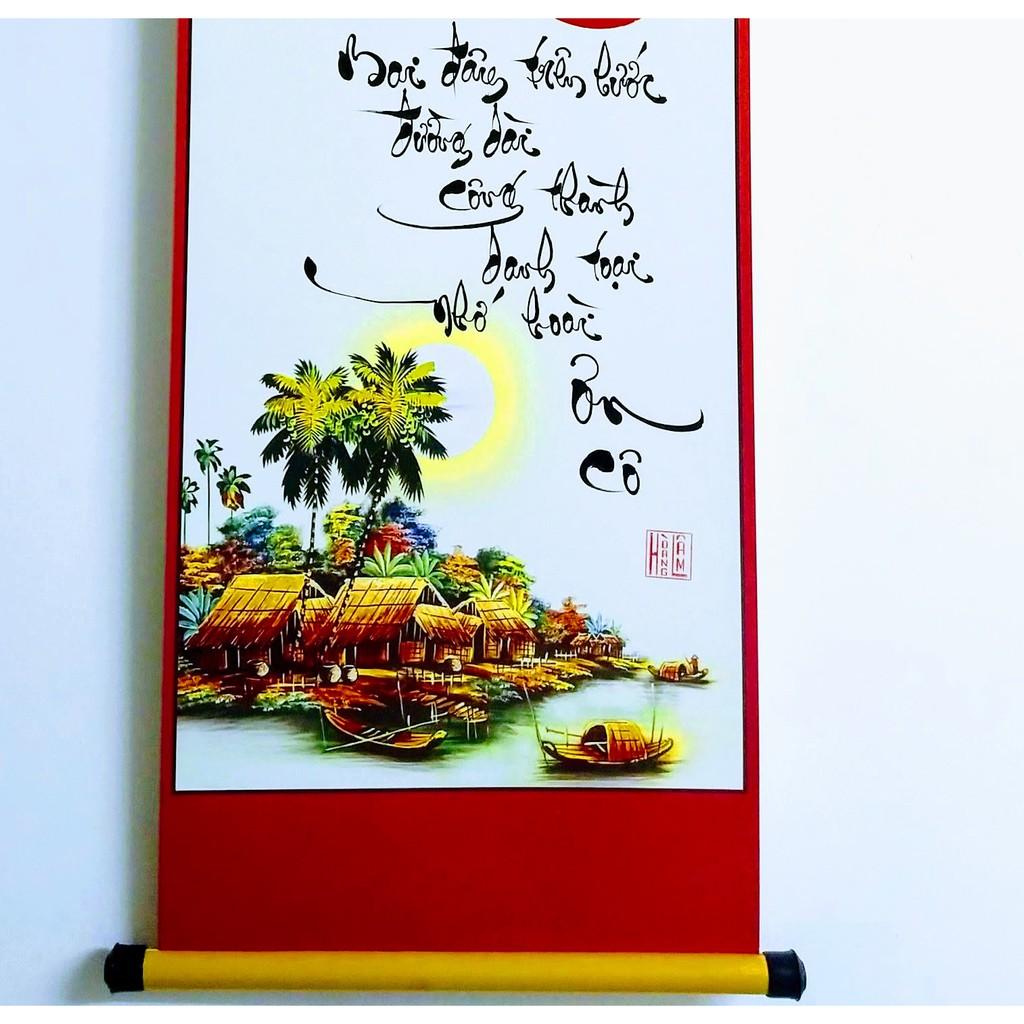 Mai đây trên bước
đường đài
Công thành
danh toại
Nhớ hoài
ơn
cô
HOÀNG LÂM